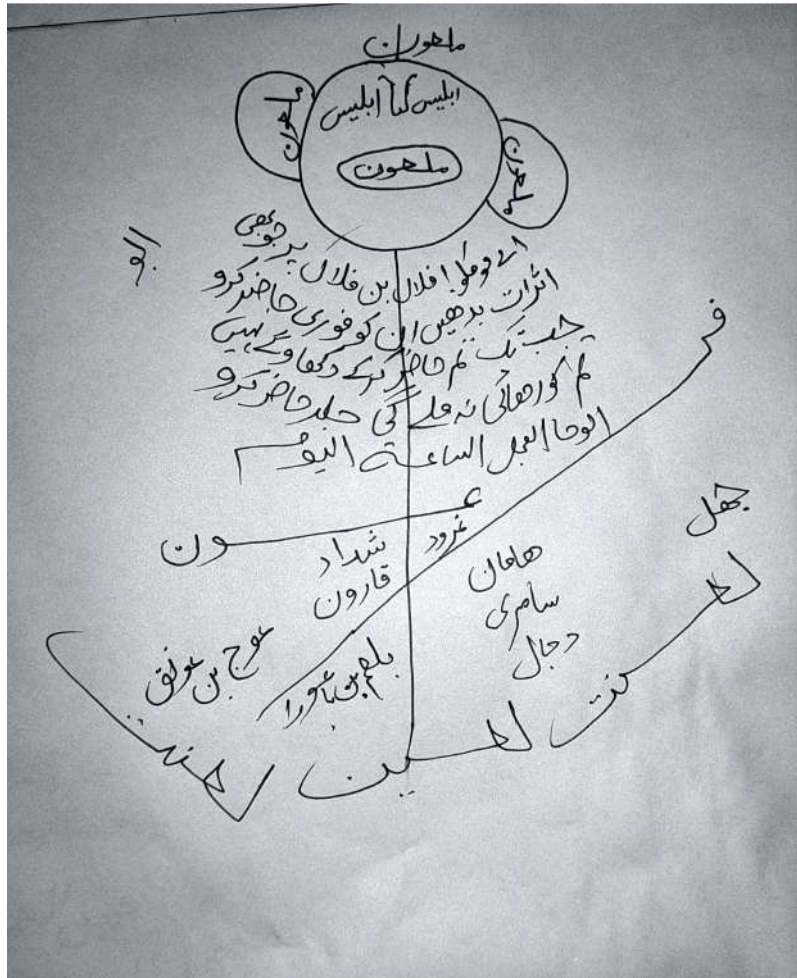 ملعون
ابلیس کا ابلیس
ملعون
ملعون
ملعون
ابو
اے موکلو! فلاں بن فلاں پر جو بھی
اثرات بد ھیں ان کو فوری حاضر کرو
جب تک تم حاضر کرکے دکھاوگے نہیں
تم کو رھائی نہ ملے گی جلد حاضر کرو
الوحا العجل الساعة الیوم
فر
عون
نمرود
شداد
قارون
ھامان
سامری
دجال
جھل
عوج بن عونق
بلعم بن باعورا
لعنت لعین لعنت